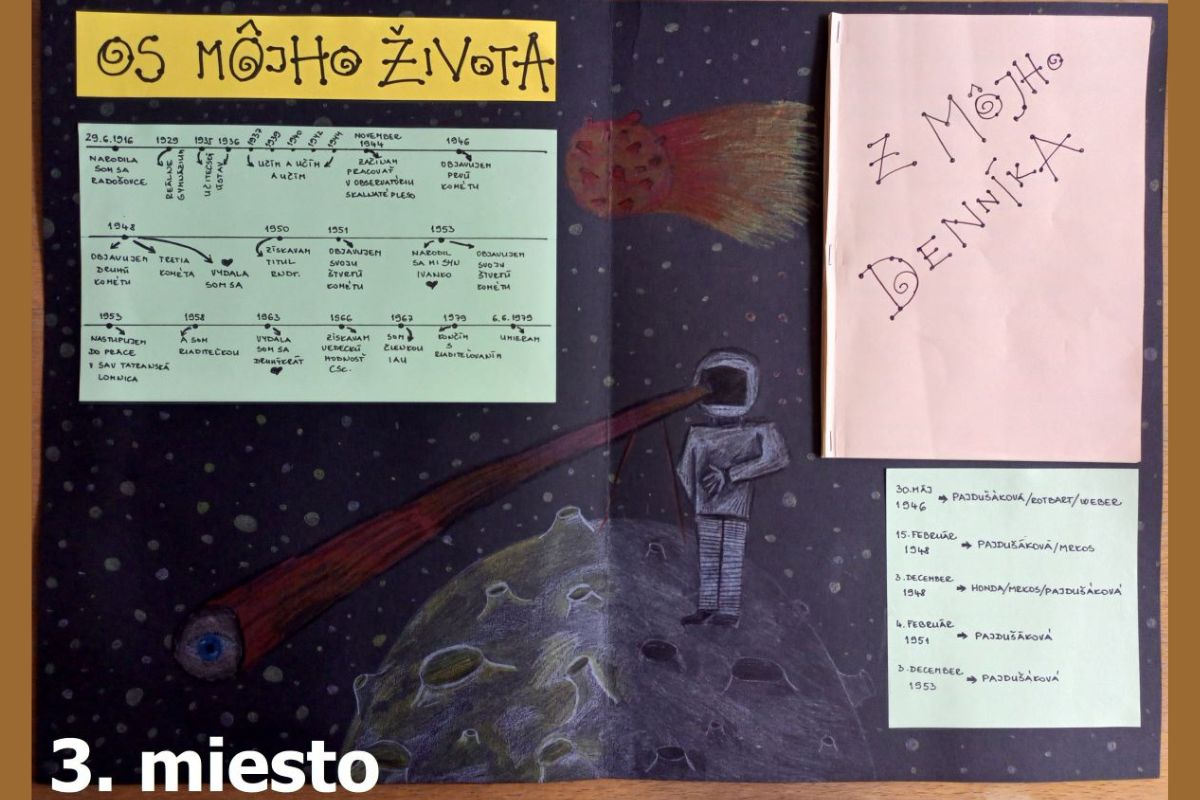 OS MÔJHO ŽIVOTA
29.6.1916 1929 1935 1936 1937 1939 1940 1942 1944 NOVEMBER 1944 1946
NARODILA
SOM SA
RADOŠOVCE
REÁLNE
GYMNÁZIUM
UČITEĽSKÝ
ÚSTAV
UČÍM A UČÍM
A UČÍM
ZAČÍNAM
PRACOVAŤ
V OBSERVATÓRIU
SKALNATÉ PLESO
OBJAVUJEM
PRVÚ
KOMÉTU
1948 1950 1951 1953
OBJAVUJEM
DRUHÚ
KOMÉTU
TRETIA
KOMÉTA
VYDALA
SOM SA
ZÍSKAVAM
TITUL
RNDr.
OBJAVUJEM
SVOJU
ŠTVRTÚ
KOMÉTU
NARODIL
SA MI SYN
IVANKO
OBJAVUJEM
SVOJU
ŠTVRTÚ
KOMÉTU
1953 1958 1963 1966 1967 1979 6.6.1979
NASTUPUJEM
DO PRÁCE
V SAV TATRANSKÁ
LOMNICA
A SOM
RIADITEĽKOU
VYDALA
SOM SA
DRUHÝKRÁT
ZÍSKAVAM
VEDECKÚ
HODNOSŤ
CSc.
SOM
ČLENKOU
IAU
KONČÍM
S
RIADITEĽOVANÍM
UMIERAM
Z MÔJHO
DENNÍKA
30. MÁJ
1946 → PAJDUŠÁKOVÁ/ROTBART/WEBER
15. FEBRUÁR
1948 → PAJDUŠÁKOVÁ/MRKOS
3. DECEMBER
1948 → HONDA/MRKOS/PAJDUŠÁKOVÁ
4. FEBRUÁR
1951 → PAJDUŠÁKOVÁ
3. DECEMBER
1953 → PAJDUŠÁKOVÁ
3. miesto